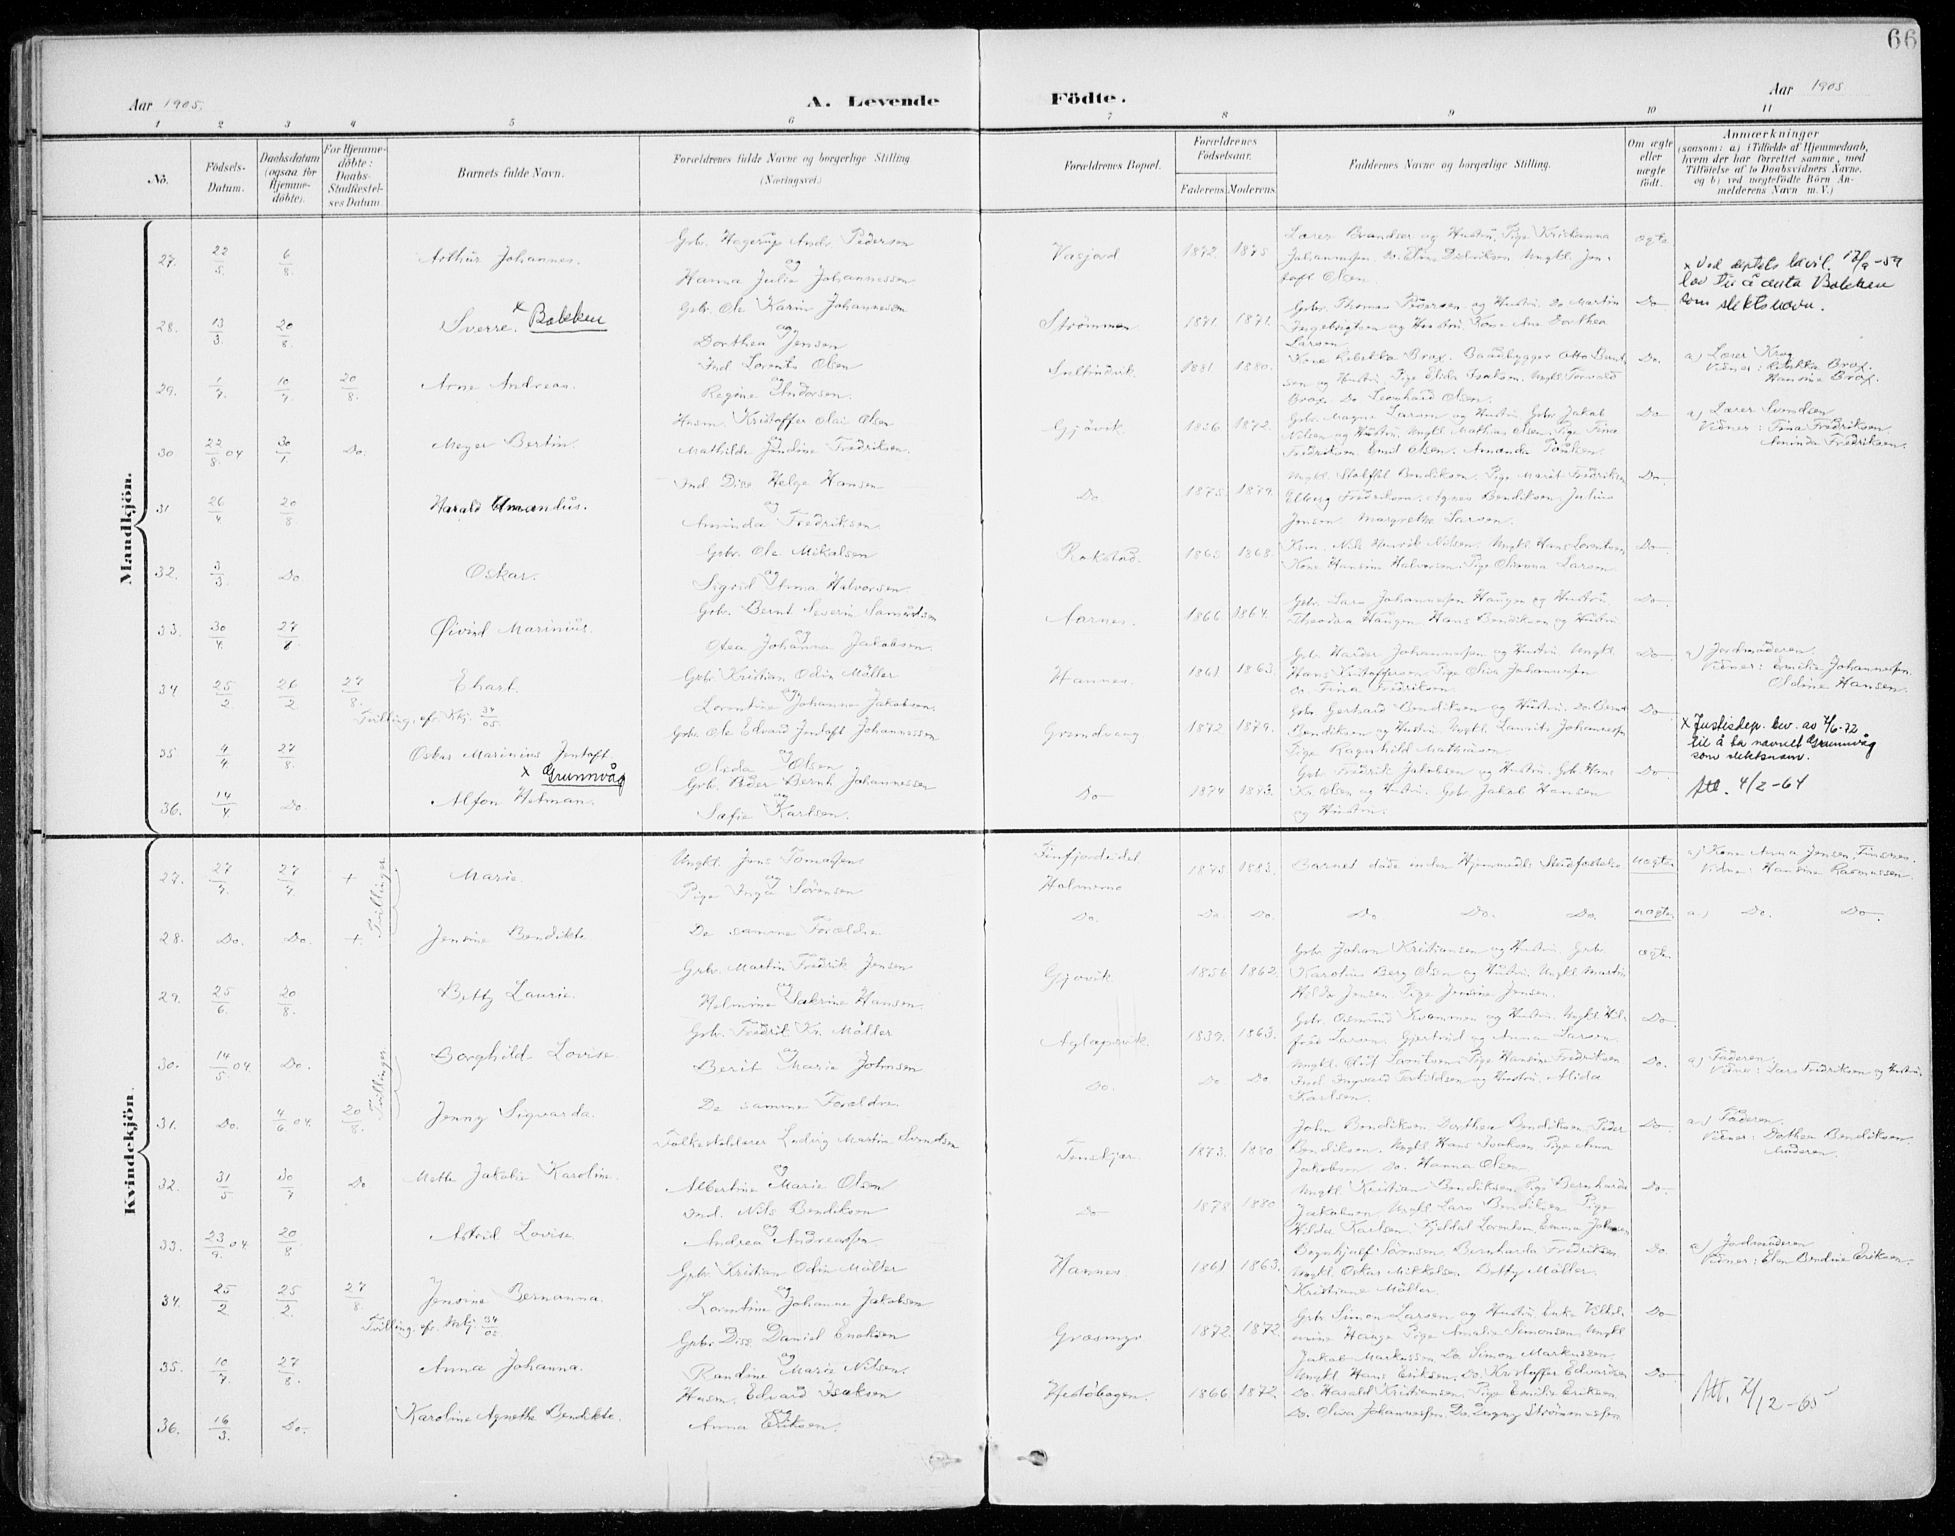 66
Aar 1905. A. Levende Födte. Aar 1905
1 2 3 4 5 6 7 8 9 10 11
No. Födsels-Datum. Daabsdatum (ogsaa for Hjemme-döbte). For Hjemme-döbte: Daabs-Stadfæstel-ses Datum. Barnets fulde Navn. Forældrenes fulde Navne og borgerlige Stilling. (Næringsvei.) Forældrenes Bopæl. Forældrenes Födselsaar. Faderens. Moderens. Faddernes Navne og borgerlige Stilling. Om ægte eller uægte födt. Anmærkninger (saasom: a) i Tilfælde af Hjemmedaab, hvem der har forrettet samme, med Tilföielse af to Daabsvidners Navne. og b) ved uægtefödte Börn An-melderens Navn m. V.)
Mandkjön.
27. 22/5. 6/8. Arthur Johannes. Gbr. Hagerup Andr. Pedersen og Hanna Julie Johannessen Vasjord 1872. 1875 Lærer Brandser og Hustru, Pige Kristianna Johannessen. Do. Didriksen. Ungkl. Jentoft Olsen ægte
28. 13/3. 20/8. Sverre. x Bakken Gbr. Ole Karin Johannessen og Dorthea Jensen Strömmen 1871. 1871. Gbr. Thomas Pedersen og Hustru. Do Martin Ingebrigtsen og Hustru. Kone Ane Dorthea Larsen Do x Ved deptets bevil. 12/9-59 lov til å anta Bakken som slektsnavn.
29. 1/7. 10/7 20/8. Arne Andreas. Ind Lorents Olsen og Regine Andersen. Sultindvik. 1881 1880. Kone Rebekka Brox. Baadbygger Otto Berntsen og Hustru. Pige Elida Isaksen. Ungkl. Torvald Brox. Do Leonhard Olsen. Do. a) Lærer Krog Vidner: Rebekka Brox. Hansine Brox.
30 22/8. 04 30/1 Do. Meyer Bertin. Husm. Kristoffer Olai Olsen og Mathilde Jendine Fredriksen. Gjövik. 1856 1872. Gbr. Magne Larsen og Hustru. Gbr. Jakob Nilsen og Hustru. Ungkl. Mathias Olsen. Pige Tina Fredriksen. Emil Olsen. Amanda Poulsen. Do a) Lærer Svendsen Vidner: Tina Fredriksen. Aminda Fredriksen.
31 26/4 20/8 Harald Amandus. Ind Diss Helge Hansen og Aminda Fredriksen Do. 1875. 1879. Ungkl. Bendiksen. Pige Marit Fredriksen Elberg Fredriksen. Agnes Bendiksen. Julius Jensen. Margrethe Larsen. Do
32. 3/3. Do Oskar. Gbr. Ole Mikalsen og Sigrid Anna Halvorsen Rokstad. 1865 1868. Nils Henrik Nilsen. Ungkl Hans Lorentsen Kone Hansine Halvorsen. Pige Larsen. Do
33. 30/4. 27/8 Øivind Marinius. Gbr. Bernt Severin Samuelsen og Otea Johanna Jakobsen. Aarnes. 1866 1864. Gbr. Lars Johannessen Haugen og Hustru Theodora Haugen. Hans Bendiksen og Hustru. Do
34 25/2 26/2 27/8. Ehart. Tvilling, cfr. Kkj. 34/05. Gbr. Kristian Odin Möller og Lorentine Johanne Jakobsen. Hannes. 1861 1863. Gbr. Harder Johannessen og Hustru Ungkl. Hans Kristoffersen. Pige Oliva Johannessen Do. Tina Fredriksen. Do a) Jordmoderen. Vidner: Emilie Johannessen. Oldine Hansen.
35 4/4 27/8. Oskar Marinius Jentoft x Grunnvåg Gbr. Ole Edvard Jentoft Johannessen og Olsen Grundvaag 1872 1879. Gbr. Gerhard Bendiksen og Hustru. Do. Bernt Bendiksen og Hustru. Ungkl. Laurits Johannessen Pige Ragnhild Mathiesen. Do x Justisdep. bev. av 7/6-72 til å ta navnet Grunnvåg som slektsnavn.
36. 14/4 Do. Alfon Hetman. Gbr. Peder Bernt Johannessen og Safie Karlsen. Do 1874 1883. Gbr. Fredrik Jakobsen og Hustru. Gbr. Hans Kr. Olsen og Hustru. Gbr Jakob Hansen og Hustru. Do. Att. 4/2-64
Kvindekjön.
27. 27/7. 27/7 + Tvillinger Marie. Ungkl. Jens Tomassen og Pige Inga Sörensen Finfjordeidet Holmene 1875. 1883. Barnet döde inden Hjemmedb. Stadfæstelse uægte a) Kone Anna Jensen, Finsnes. Vidne: Hansine Rasmussen.
28. Do. Do. + Jensine Bendikte De samme Forældre Do. Do Do. Do Do. Do. uægte a) Do. Do.
29. 25/6. 20/8. Betty Laurie. Gbr. Martin Fredrik Jensen og Helmine Sakrine Hansen Gjövik 1856 1862. Gbr. Johan Kristiansen og Hustru Gbr. Karolius Berg Olsen og Hustru. Ungkl. Martin Hilda Jensen Pige Jensine Jensen. ægte.
30. 14/5 04 Do. Tvillinger Borghild Lovise. Gbr. Fredrik Kr. Möller og Berit Marie Johnsen Aglapsvik. 1839. 1863. Gbr. Osmund Kvammen og Hustru. Ungkl. Larsen. Gjertrud og Anna Larsen. Do
31. Do. 4/6 04. 20/8. Jenny Sigvarda. De samme Forældre. Do. Do Do Ungkl. Oluf Pige Hansine Fredriksen Ind. Ingvald Torkildsen og Hustru. Alida Karlsen. Do. a) Faderen. Vidner: Lars Fredriksen og Hustru.
32. 31/5 30/7 Do Mette Jakobie Karoline. Folkeskolelærer Ludvig Martin Svendsen og Albertine Marie Olsen Tenskjær. 1873. 1880 John Bendiksen. Dorthea Bendiksen Peder Bendiksen. Ungkl. Hans Isaksen. Pige Anna Jakobsen Do. Hanna Olsen. Do a) Faderen. Vidner: Dothea Bendiksen. Moderen.
33. 23/9. 04. 20/8. Astrid Lovise. Ind. Nils Bendiksen og Andrea Andreassen Do 1878. 1880 Ungkl. Kristian Bendiksen, Pige Bernharda Jakobsen Ungkl. Lars Bendiksen. Pige Hilda Karlsen. Kjeldal Lorentsen, Emma Do
34. 25/2. 25/2. 27/8. Jensine Bernanna. Tvilling. cfr. Mkj. 34/05. Gbr. Kristian Odin Möller og Lorentine Johanne Jakobsen Hannes 1861 1863. Sörensen. Bernharda Fredriksen. Ungkl. Oskar Mikkelsen. Betty Möller. Kristiane Möller. Do. a) Jordmoderen Vidner: Elen Bendine Eriksen.
35. 10/7. 27/8. Anna Johanna. Gbr. Diss. Daniel Enoksen og Randine Marie Nilsen. Græsmyr 1872. 1872. Gbr. Simon Larsen og Hustru Enke Vilhelmine Hauge Pige Amalie Simonsen, Ungkl Jakob Markussen, Do. Simon Markussen. Do
36. 16/3. Do. Karoline Agnethe Bendikte. Husm. Edvard Isaksen og Anna Eriksen. Hestöbogen. 1866 1872. Ungkl. Hans Eriksen. Do. Kristoffer Edvardsen Do. Harald Kristiansen. Pige Emilie Eriksen. Do. Oliva Johannessen. Do. Do Att. 7/12-65